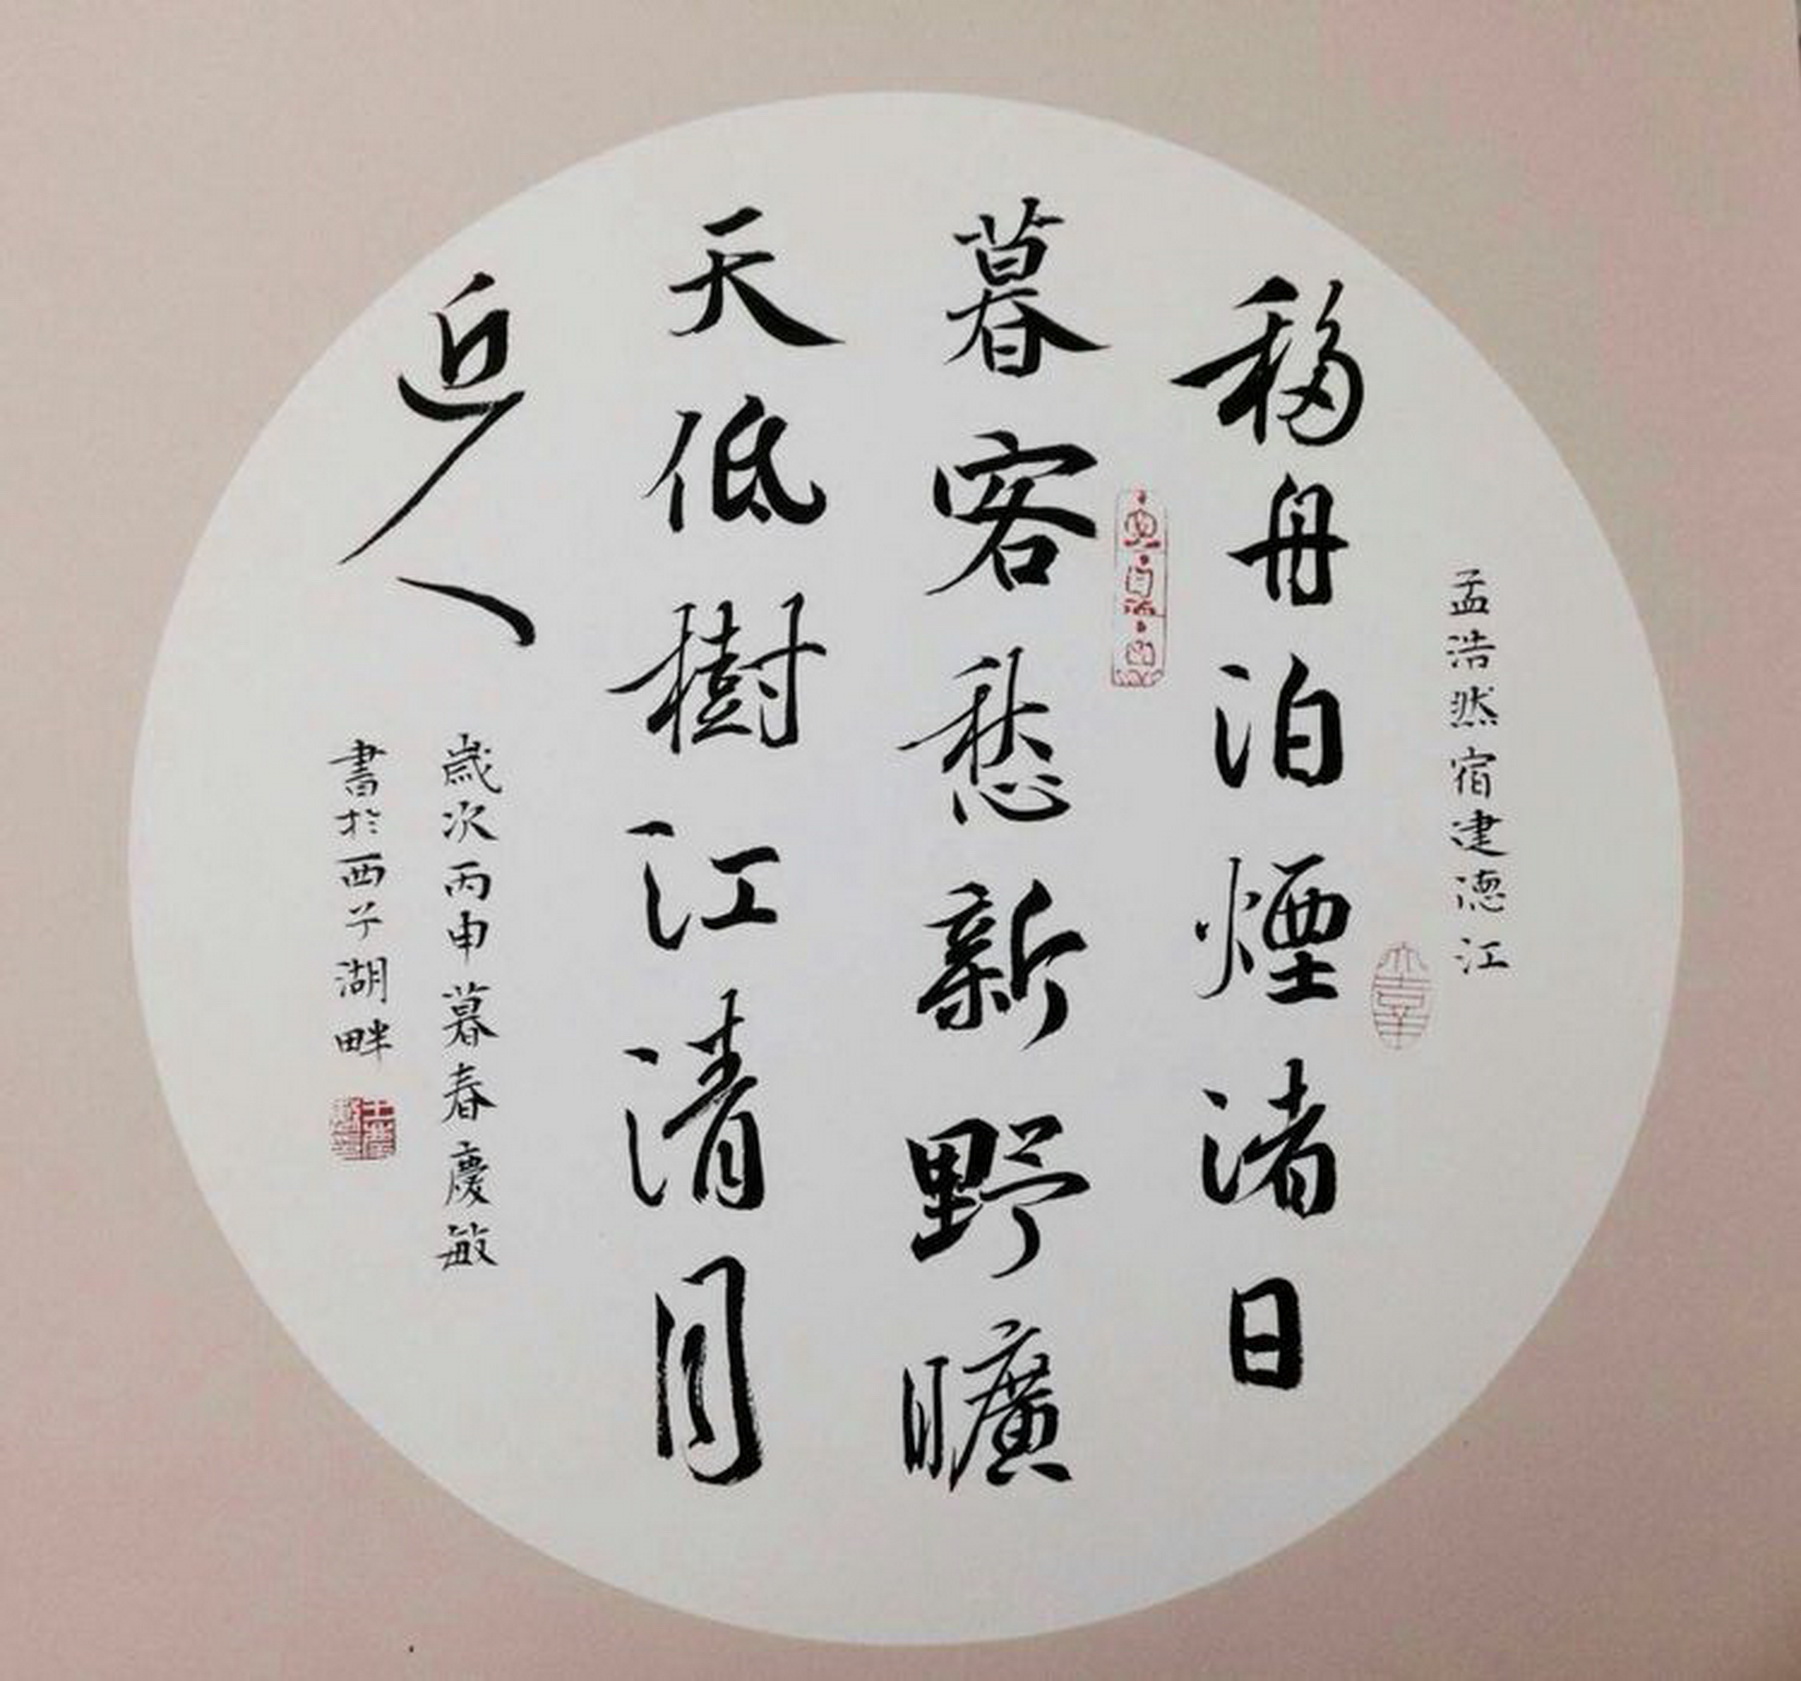 孟浩然宿建德江
移舟泊煙渚日
暮客愁新野曠
天低樹江清月
近人
歲次丙申暮春慶敏
書於西子湖畔